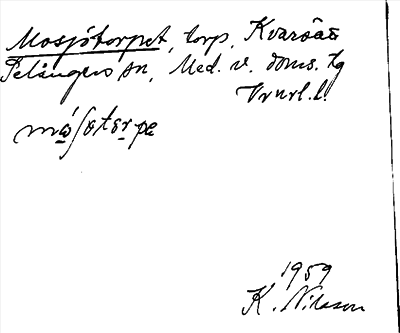 Mosjötorpet, torp, Kvarsås
Selångers sn, Med. v. doms. tg
Vrnrl. l.
mo̲ʃøto̲rpe
1959
K. Nilsson